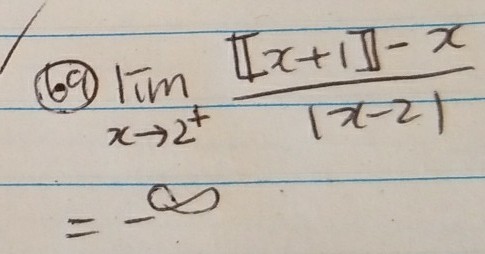 (69) lim x→2⁺ ⟦x+1⟧-x / |x-2|
= -∞